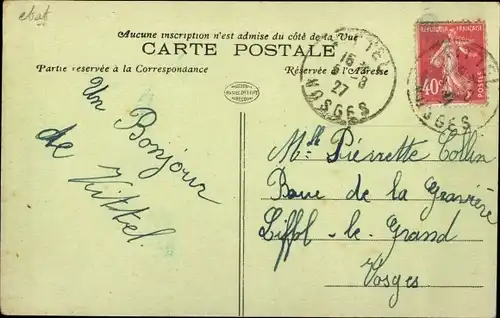 etat
Aucune inscription n'est admise du côté de la Vue
CARTE POSTALE
Partie réservée à la Correspondance
Réservée à l'Adresse
Un Bonjour
de Vittel.
VITTEL
16
5 - 8
27
VOSGES
FRANÇAISE
POSTES
40c
VOSGES
Mlle Pierrette Collin
de la Gravière
Liffol-le-Grand
Vosges